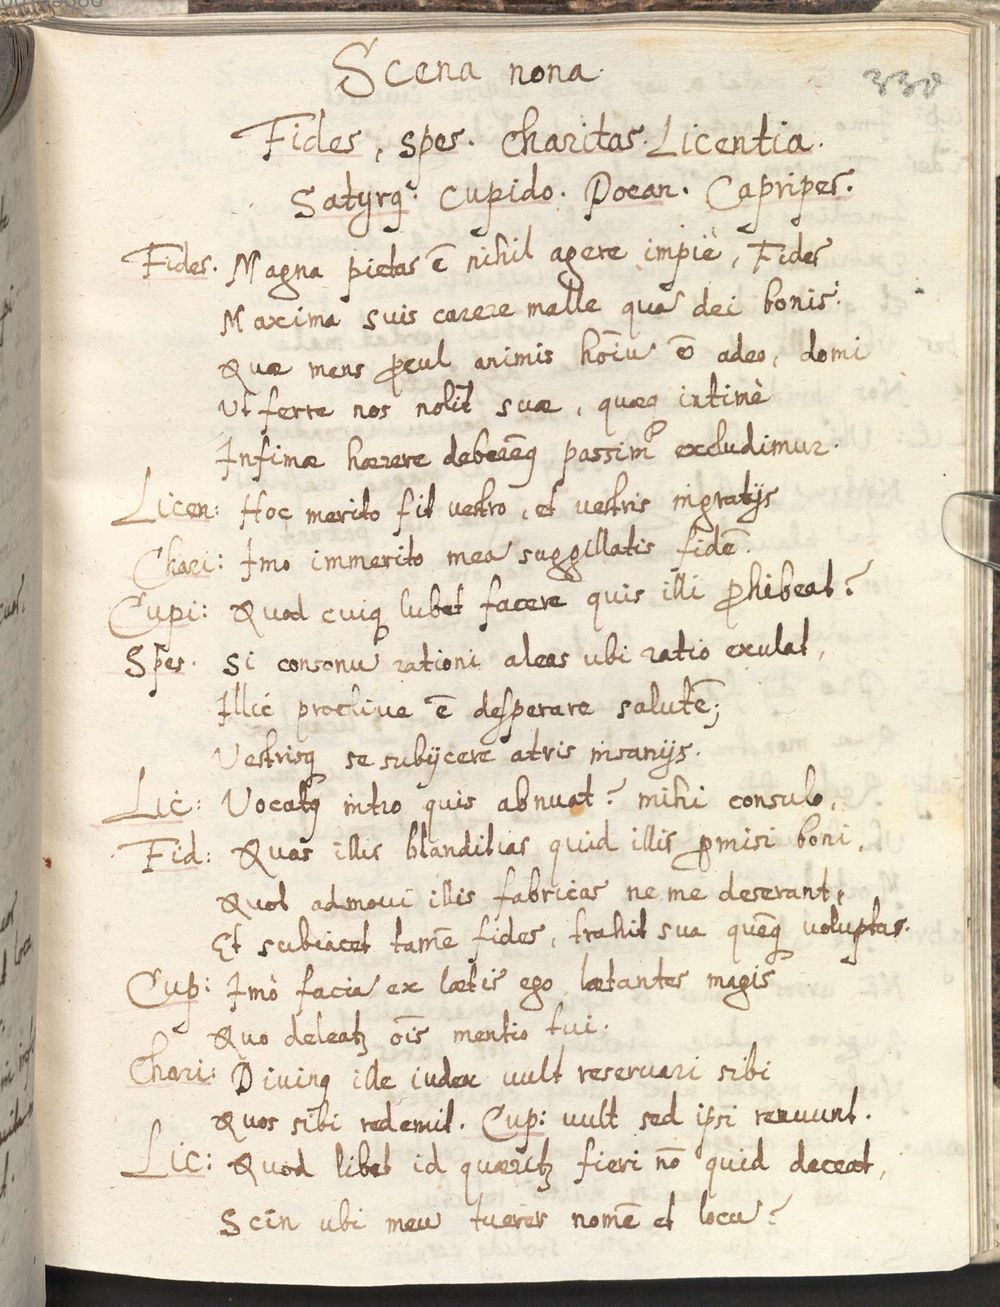 Scena nona.
338
Fides, Spes. Charitas. Licentia.
Satyrq. Cupido. Docan. Capripes.
Fides. Magna pietas ē nihil agere impie, Fides
Maxima suis carere malle quā dei bonis.
Quæ mens ꝓcul animis hoīu ē adeo, domi
Ut ferre nos nolit suæ, quæq intimè
Infimæ hærere debereq passim excludimur.
Licen: Hoc merito fit vestro, et vestris ingratijs
Chari: Imo immerito mea suggillatis fidē.
Cupi: Quod cuiq lubet facere quis illi ꝓhibeat?
Spes. Si consonu rationi aleas ubi ratio exulat,
Illic proclive ē desperare salutē;
Vestrisq se subijcere atris insanijs.
Lic: Vocatq intro quis abnuat? mihi consulo,
Fid: Quas illis blanditias quid illis ꝓmisi boni,
Quot admovi illis fabricas ne me deserant,
Et subiacet tamē fides, trahit sua quēq voluptas.
Cup: Imò facia ex lætis ego lætantes magis
Quo deleatꝫ oīs mentio tui.
Chari: Divinq ille iudex vult reservari sibi
Quos sibi redemit. Cup: vult sed ipsi renuunt.
Lic: Quod libet id quæritꝫ fieri nō quid deceat,
Scin ubi meu tueres nomē et locu?